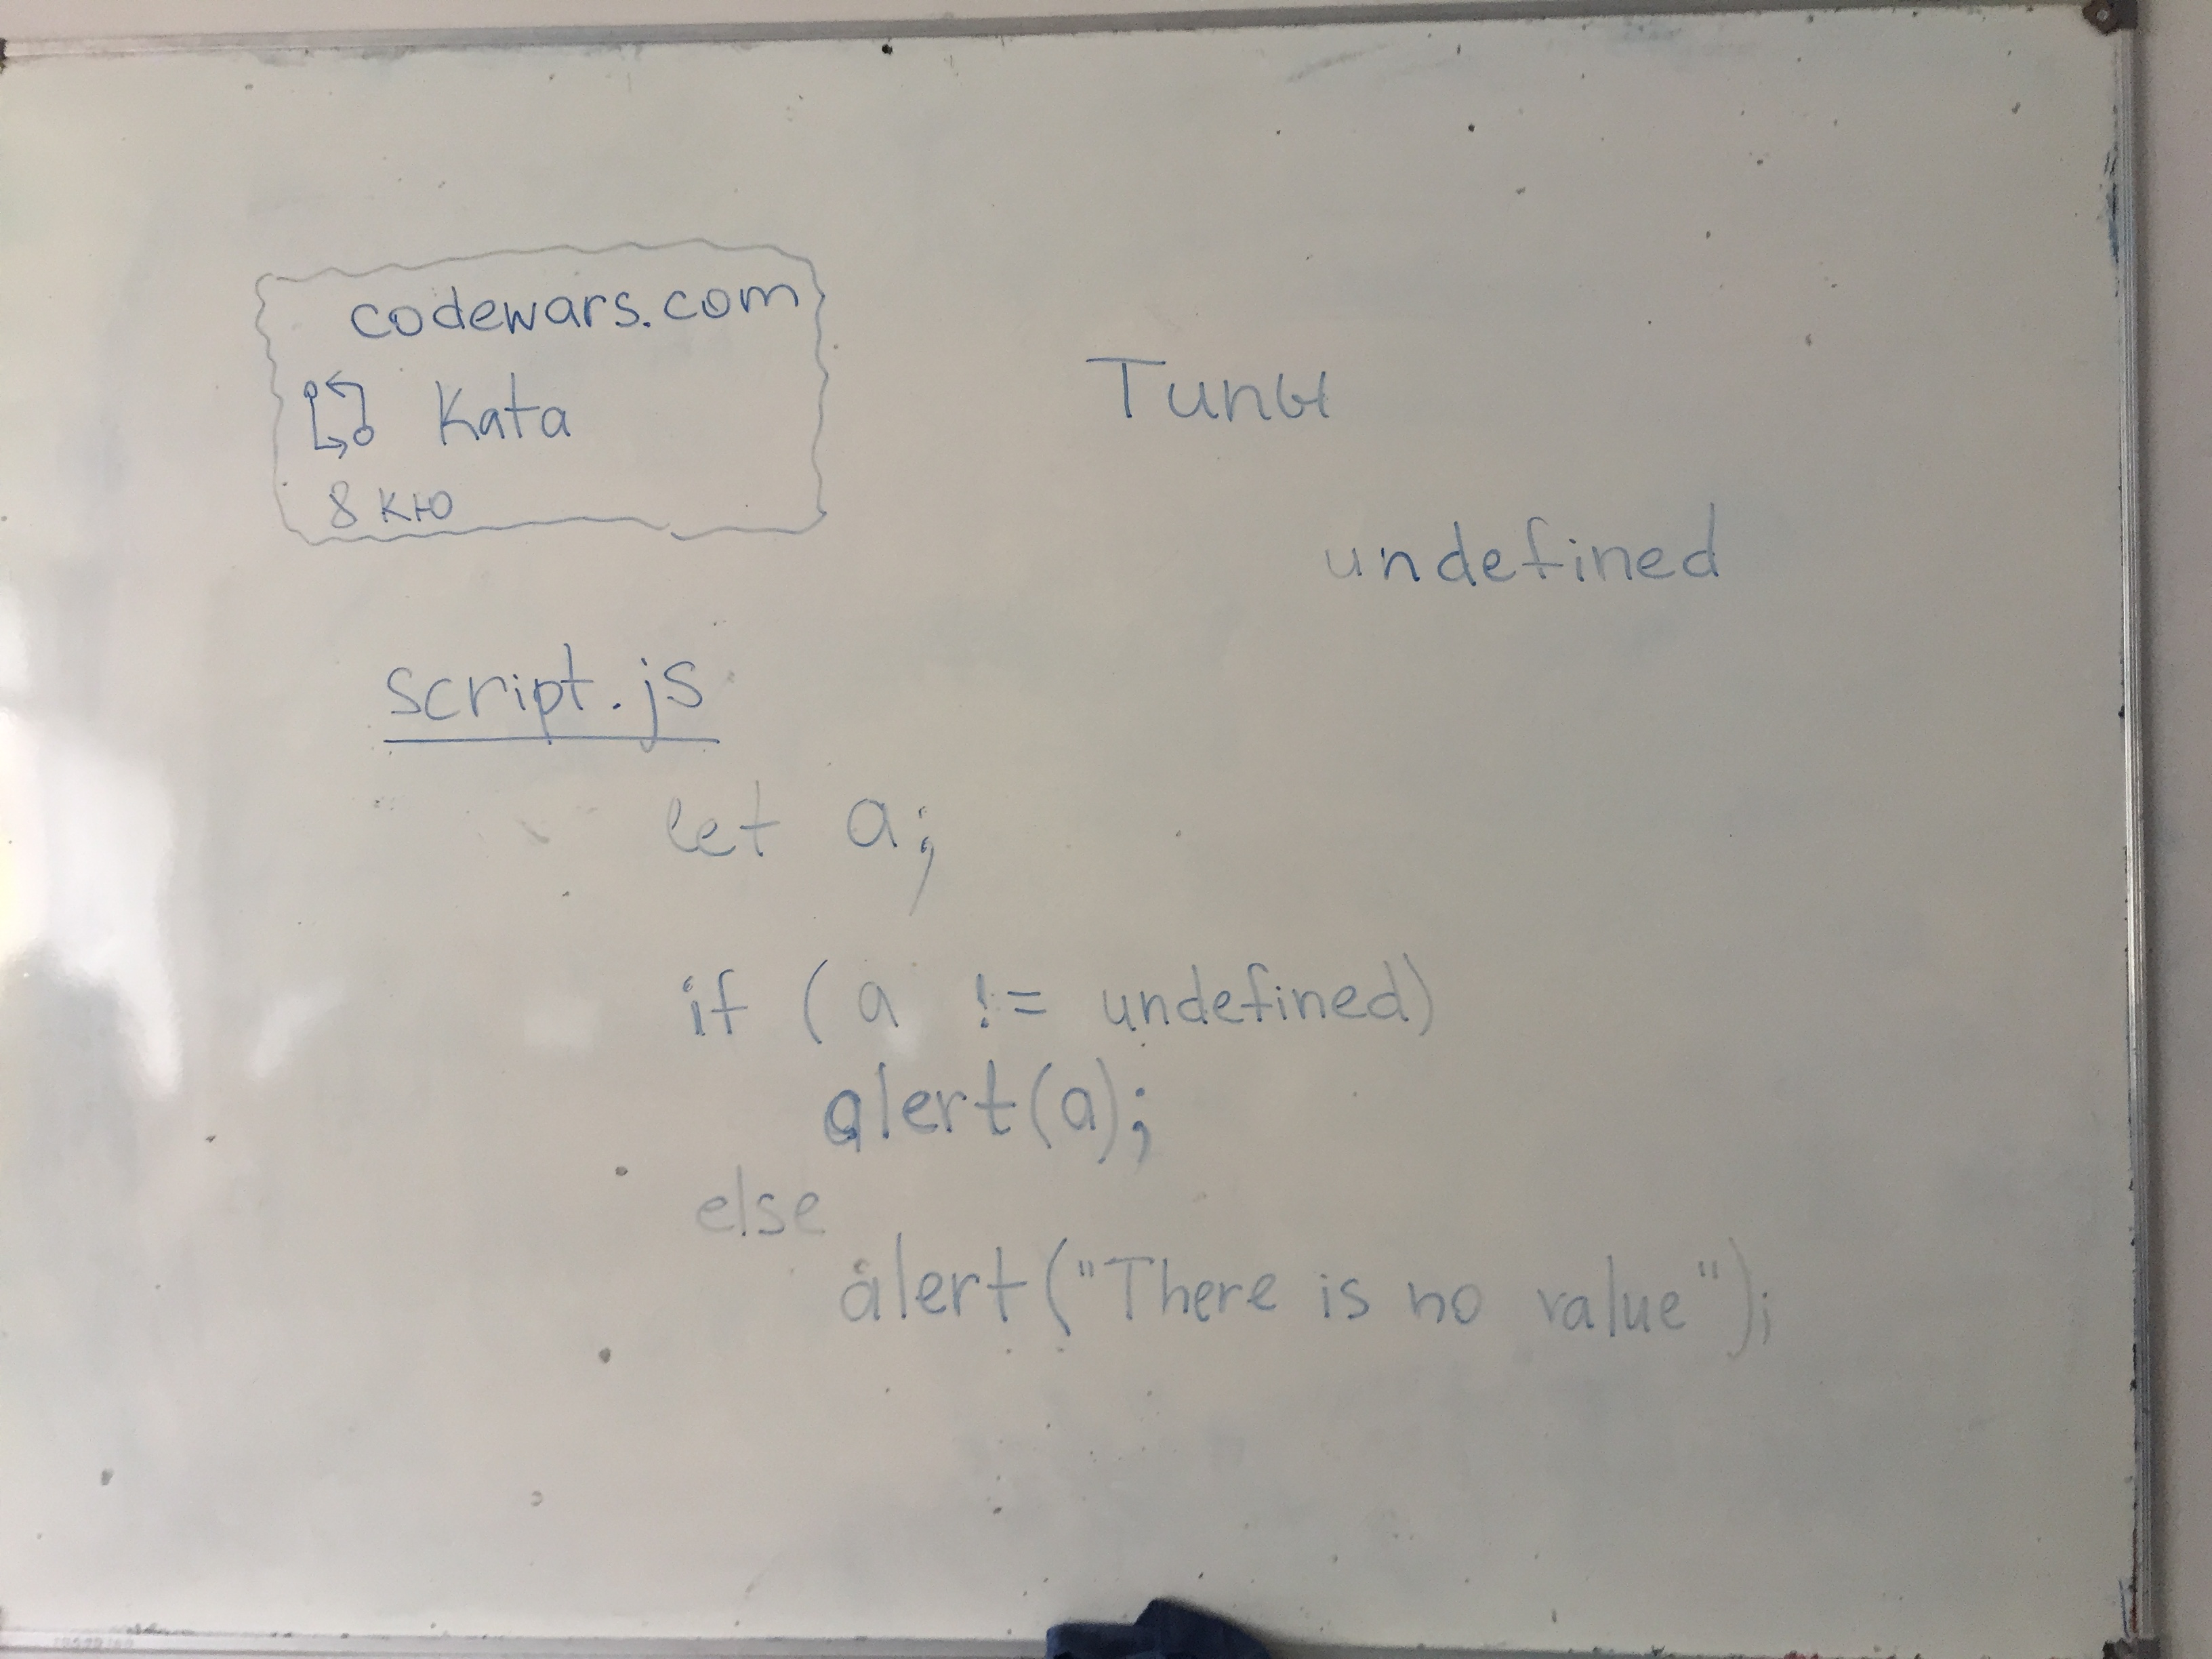 codewars.com
Kata
8 кю
Типы
undefined
script.js
let a;
if (a != undefined)
alert(a);
else
alert("There is no value");